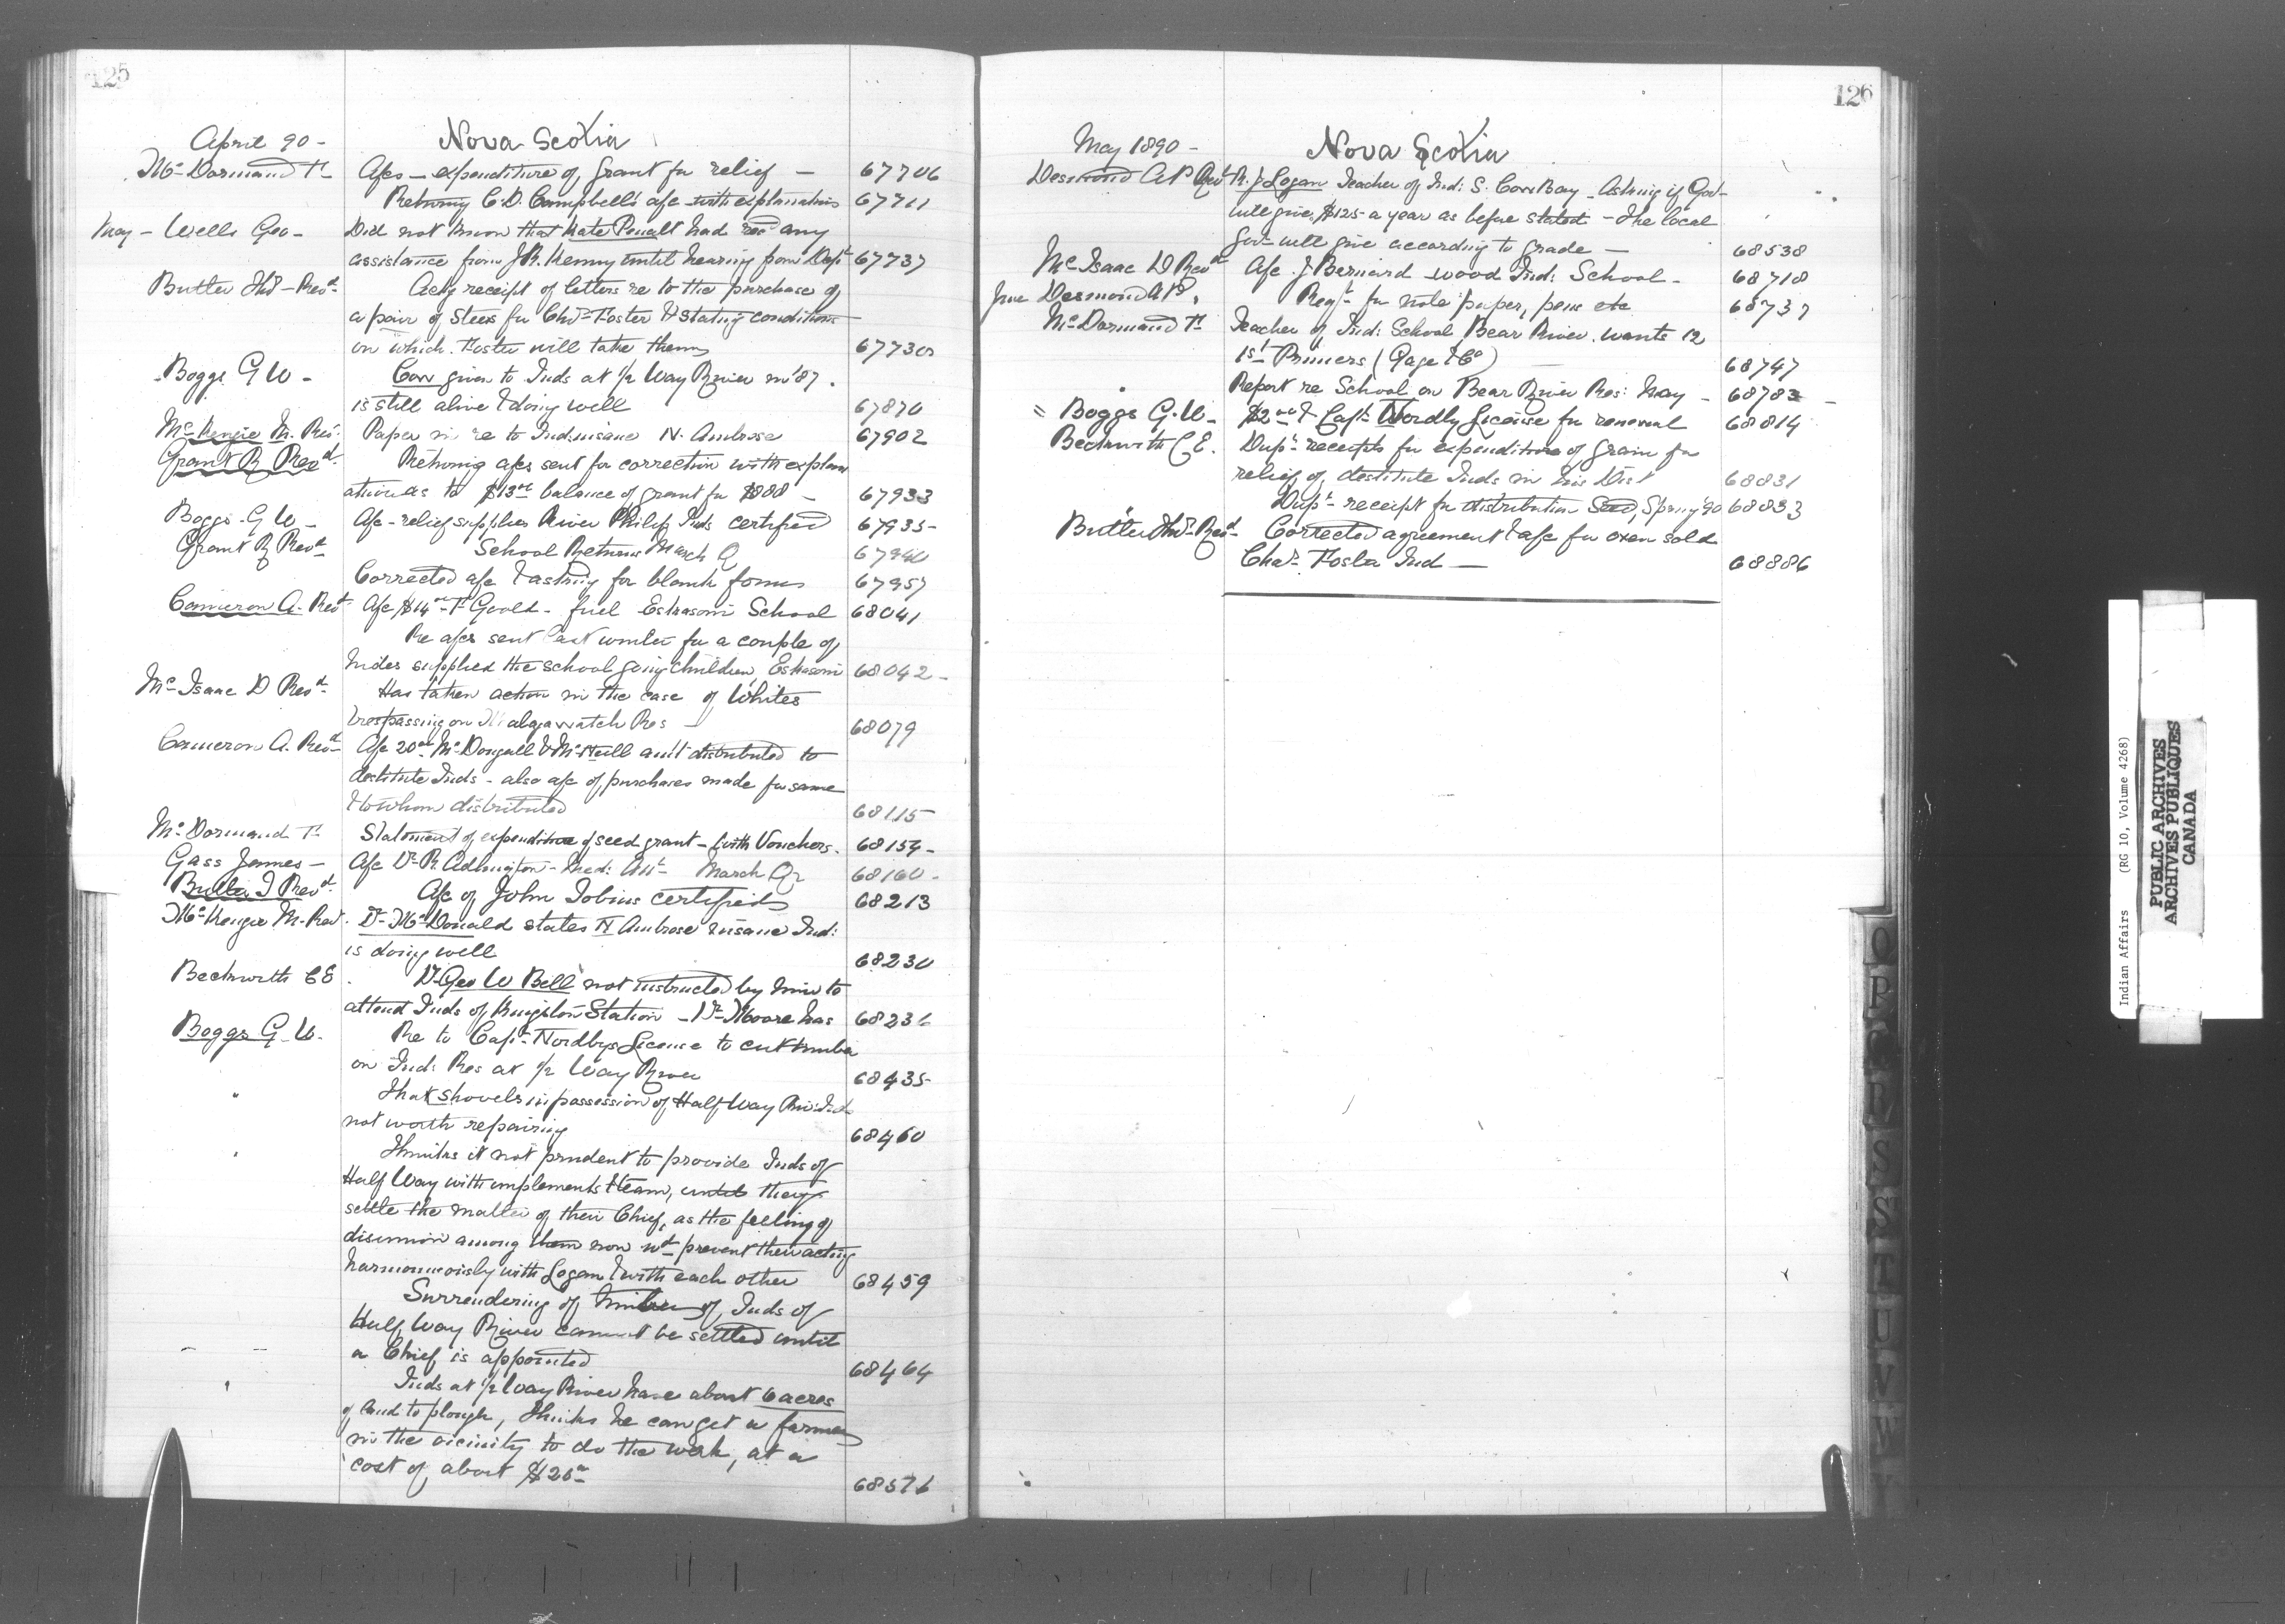 125
April 90 - Nova Scotia
McDormand T. Afcs - expenditure of grant for relief - 67706
Returning C.D. Campbell's afc with explanations 67711
May - Wells Geo - Did not know that Kate Penalt had recd any
assistance from J.R. Kenny until hearing from Dept 67737
Butler Thos - Revd Ackg receipt of letters re to the purchase of
a pair of Steers for Chas Foster & stating conditions
on which Foster will take them
Boggs G W - Cow given to Inds at 1/2 Way River in '87.
is still alive & doing well 67870
McKenzie M. Rev. Paper in re to Ind. insane N. Ambrose 67902
Grant R Revd Returning afcs sent for correction with explan
ation as to $13 balance of grant for 1888 - 67933
Boggs - G W - Afc - relief supplies River Philip Inds certified 67935
Grant R Revd School Returns March Q 67940
Corrected afc & asking for blank forms 67957
Cameron A. Revd Afc $14 - F Goold - fuel Eskasoni School 68041
Re afcs sent last winter for a couple of
Indes supplied the school going children, Eskasoni 68042 -
McIsaac D Revd Has taken action in the case of Whites
trespassing on Malagawatch Res 68079
Cameron A. Revd Afc 20 McDougall & McNeill amt distributed to
destitute Inds - also afc of purchases made for same
& to whom distributed 68115
McDormand T. Statement of expenditure of seed grant - with Vouchers. 68154 -
Gass James - Afc Dr R. - Med: Att March Qr 68160 -
Butler T Revd Afc of John Tobins certified 68213
McKenzie M. Revd. Dr McDonald states N Ambrose insane Ind:
is doing well 68230
Beckwith C E. Dr Geo W Bell not instructed by him to
attend Inds of Kingston Station - Dr Moore has 68236
Boggs G. W. Re to Capt Nordbys License to cut timber
on Ind: Res at 1/2 Way River 68435
" That shovels in possession of Half Way Riv. Inds
not worth repairing 68460
" Thinks it not prudent to provide Inds of
Half Way with implements & team, until they
settle the matter of their Chief, as the feeling of
disunion among them now wd prevent their acting
harmoniously with Logan & with each other 68459
Surrendering of timber of Inds of
Half Way River cannot be settled until
a Chief is appointed 68464
" Inds at 1/2 Way River have about 6 acres
of land to plough, thinks he can get a farmer
in the vicinity to do the work, at a
cost of about $26 68576
126
May 1890 - Nova Scotia
Desmond A P Revd R. J Logan Teacher of Ind: S. Cow Bay - Asking if Govt
will give $125 a year as before stated - The local
Govt will give according to grade - 68538
McIsaac D Revd Afc. J Bernard wood Ind: School - 68718
June Desmond A P. Reqt for note paper, pens etc 68737
McDormand T. Teacher of Ind: School Bear River wants 12
1st Primers (Gage & Co) 68747
" Report re School on Bear River Res: May - 68783 -
" Boggs G. W - $2 & Capt Nordly License for renewal 68814
Beckwith C E. Dup: receipts for expenditure of grain for
relief of destitute Inds in his Dist 68831
Dup: receipt for distribution Seed, Spring '90 68833
Butler Thos Revd Corrected agreement & afc for oxen sold
Chas Foster Ind - 68886
Indian Affairs (RG 10, Volume 4268)
PUBLIC ARCHIVES
ARCHIVES PUBLIQUES
CANADA
O
P
Q
R
S
ST
T
U
V
W
Y